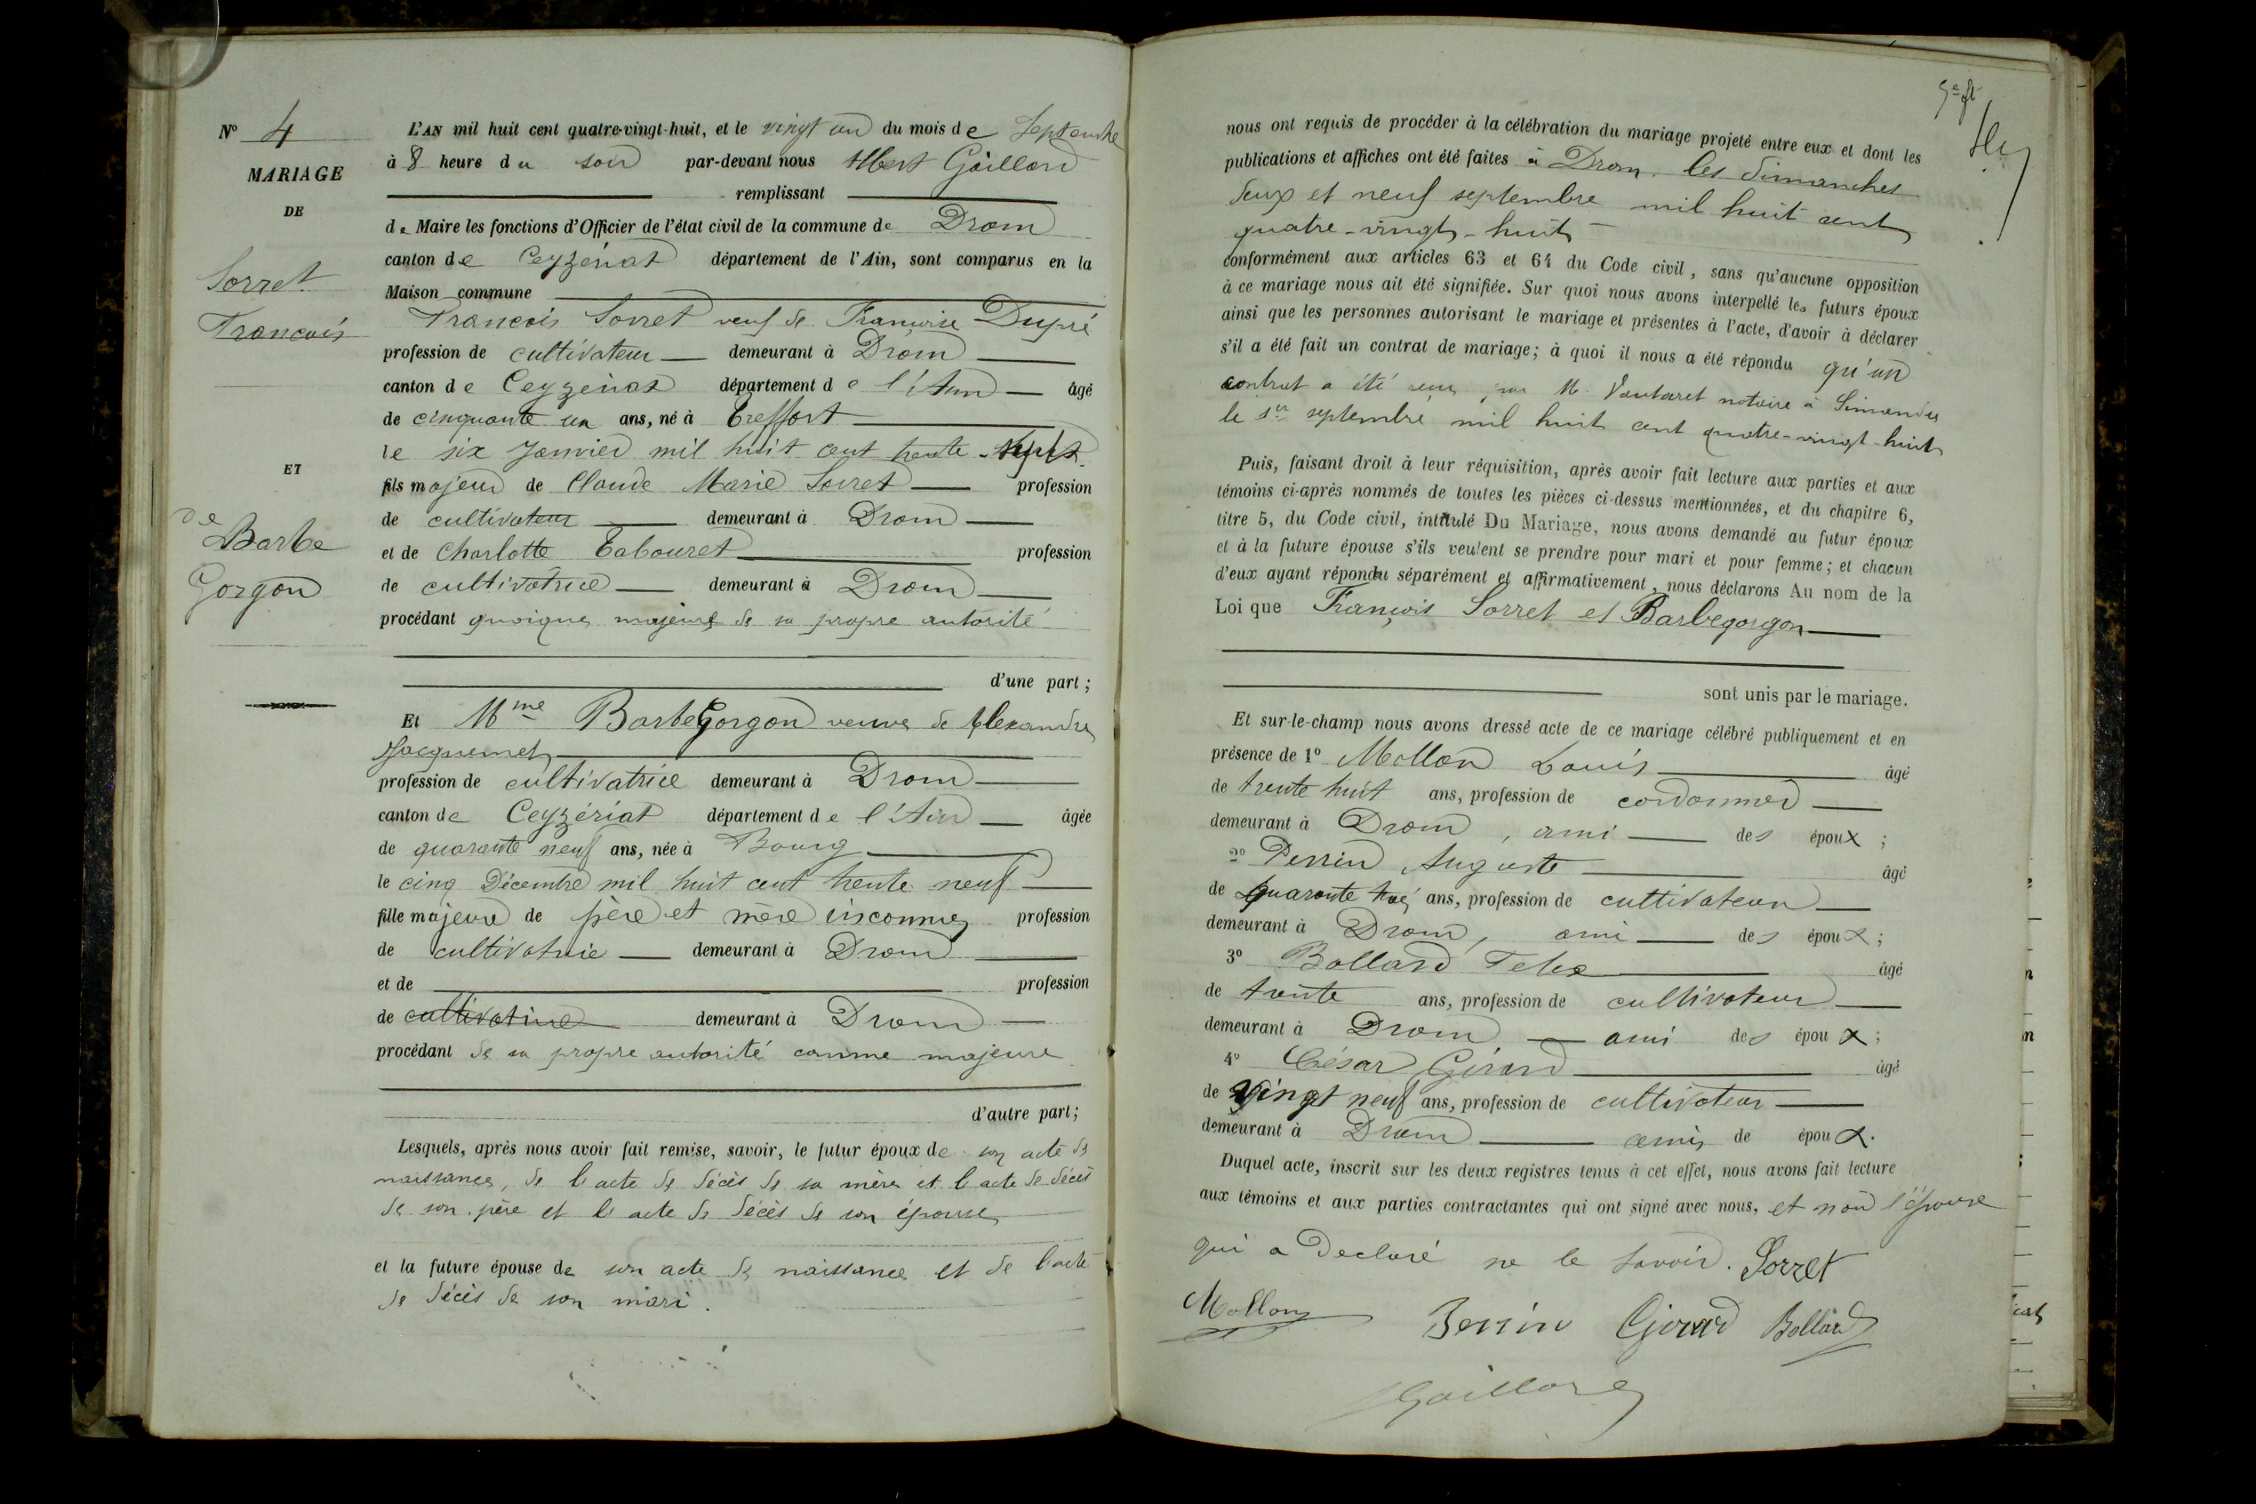 N° 4
MARIAGE
DE
Sorret
François
ET
de
Barbe
Gorgon
L'AN mil huit cent quatre-vingt-huit, et le vingt un du mois de Septembre
à 8 heure du soir par-devant nous Albert Gaillard
remplissant
de Maire les fonctions d'Officier de l'état civil de la commune de Drom
canton de Ceyzériat département de l'Ain, sont comparus en la
Maison commune
François Sorret veuf de Françoise Dupré
profession de cultivateur demeurant à Drom
canton de Ceyzériat département de l'Ain âgé
de cinquante un ans, né à Treffort
le six Janvier mil huit cent trente sept
fils majeur de Claude Marie Sorret profession
de cultivateur demeurant à Drom
et de Charlotte Tabouret profession
de cultivatrice demeurant à Drom
procédant quoique majeur de sa propre autorité
d'une part ;
Et Mme Barbe Gorgon veuve de Alexandre
Jacquemet
profession de cultivatrice demeurant à Drom
canton de Ceyzériat département de l'Ain âgée
de quarante neuf ans, née à Bourg
le cinq Décembre mil huit cent trente neuf
fille majeure de père et mère inconnus profession
de cultivatrice demeurant à Drom
et de profession
de cultivatrice demeurant à Drom
procédant de sa propre autorité comme majeure
d'autre part ;
Lesquels, après nous avoir fait remise, savoir, le futur époux de son acte de
naissance, de l'acte de décès de sa mère et l'acte de décès
de son père et l'acte de décès de son épouse
et la future épouse de son acte de naissance et de l'acte
de décès de son mari.
nous ont requis de procéder à la célébration du mariage projeté entre eux et dont les
publications et affiches ont été faites à Drom les dimanches
deux et neuf septembre mil huit cent
quatre-vingt-huit
conformément aux articles 63 et 64 du Code civil, sans qu'aucune opposition
à ce mariage nous ait été signifiée. Sur quoi nous avons interpellé les futurs époux
ainsi que les personnes autorisant le mariage et présentes à l'acte, d'avoir à déclarer
s'il a été fait un contrat de mariage ; à quoi il nous a été répondu qu'un
contrat a été reçu par M. notaire à Simandre
le 1er septembre mil huit cent quatre-vingt-huit
Puis, faisant droit à leur réquisition, après avoir fait lecture aux parties et aux
témoins ci-après nommés de toutes les pièces ci-dessus mentionnées, et du chapitre 6,
titre 5, du Code civil, intitulé Du Mariage, nous avons demandé au futur époux
et à la future épouse s'ils veulent se prendre pour mari et pour femme ; et chacun
d'eux ayant répondu séparément et affirmativement, nous déclarons Au nom de la
Loi que François Sorret et Barbegorgon
sont unis par le mariage.
Et sur-le-champ nous avons dressé acte de ce mariage célébré publiquement et en
présence de 1° Mollon Louis âgé
de trente huit ans, profession de cordonnier
demeurant à Drom, ami des époux ;
2° Perrin Auguste âgé
de quarante trois ans, profession de cultivateur
demeurant à Drom, ami des époux ;
3° Bollard Felix âgé
de trente ans, profession de cultivateur
demeurant à Drom ami des époux ;
4° César Girard âgé
de vingt neuf ans, profession de cultivateur
demeurant à Drom amis de époux.
Duquel acte, inscrit sur les deux registres tenus à cet effet, nous avons fait lecture
aux témoins et aux parties contractantes qui ont signé avec nous, et non l'épouse
qui a Declaré ne le savoir. Sorret
Mollon Perrin Girard Bollard
Gaillard